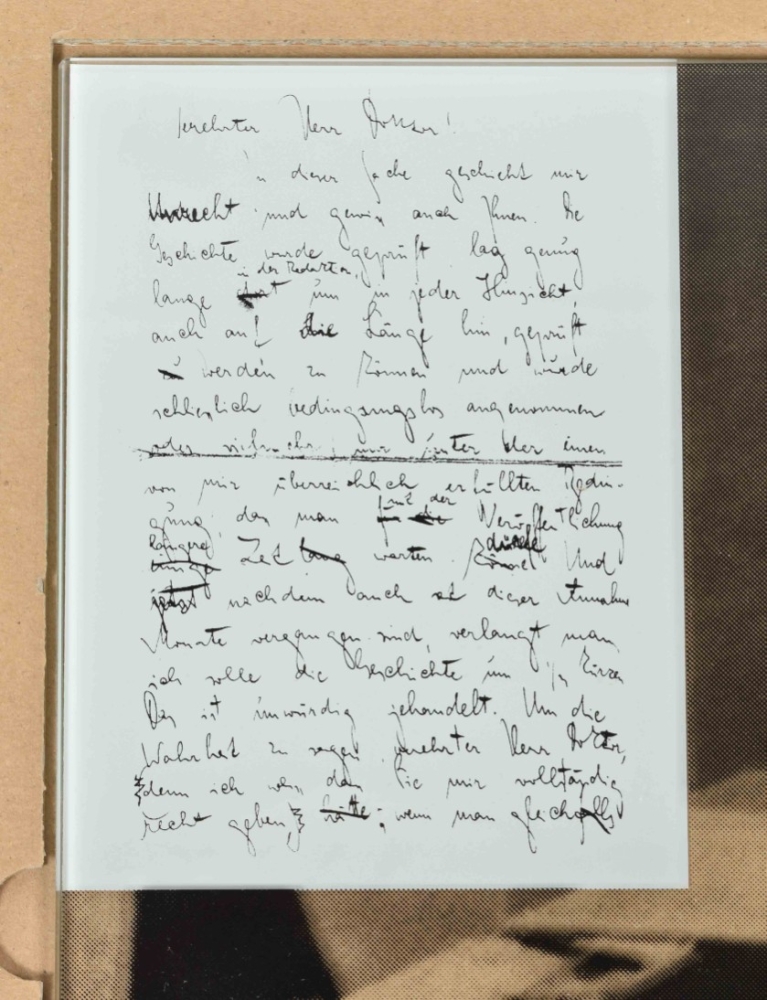 verehrter Herr Doktor!
in dieser Sache geschieht mir
Unrecht und gewiss auch Ihnen. Die
Geschichte wurde geprüft lag genug
in der Redaktion,
lange um in jeder Hinsicht,
auch auf die Länge hin, geprüft
werden zu können und wurde
schliesslich bedingungslos angenommen
oder vielmehr nur unter der einen
von mir überreichlich erfüllten Bedin-
mit der
gung, dass man Veröffentlichung
längere Zeit warten dürfe Und
jetzt nachdem auch seit dieser Annahme
Monate vergangen sind, verlangt man
ich solle die Geschichte um 1/3 kürzen
Das ist unwürdig gehandelt. Um die
Wahrheit zu sagen, verehrter Herr Doktor,
denn ich weiss dass Sie mir vollständig
recht geben, hätte: wenn man gleichfalls